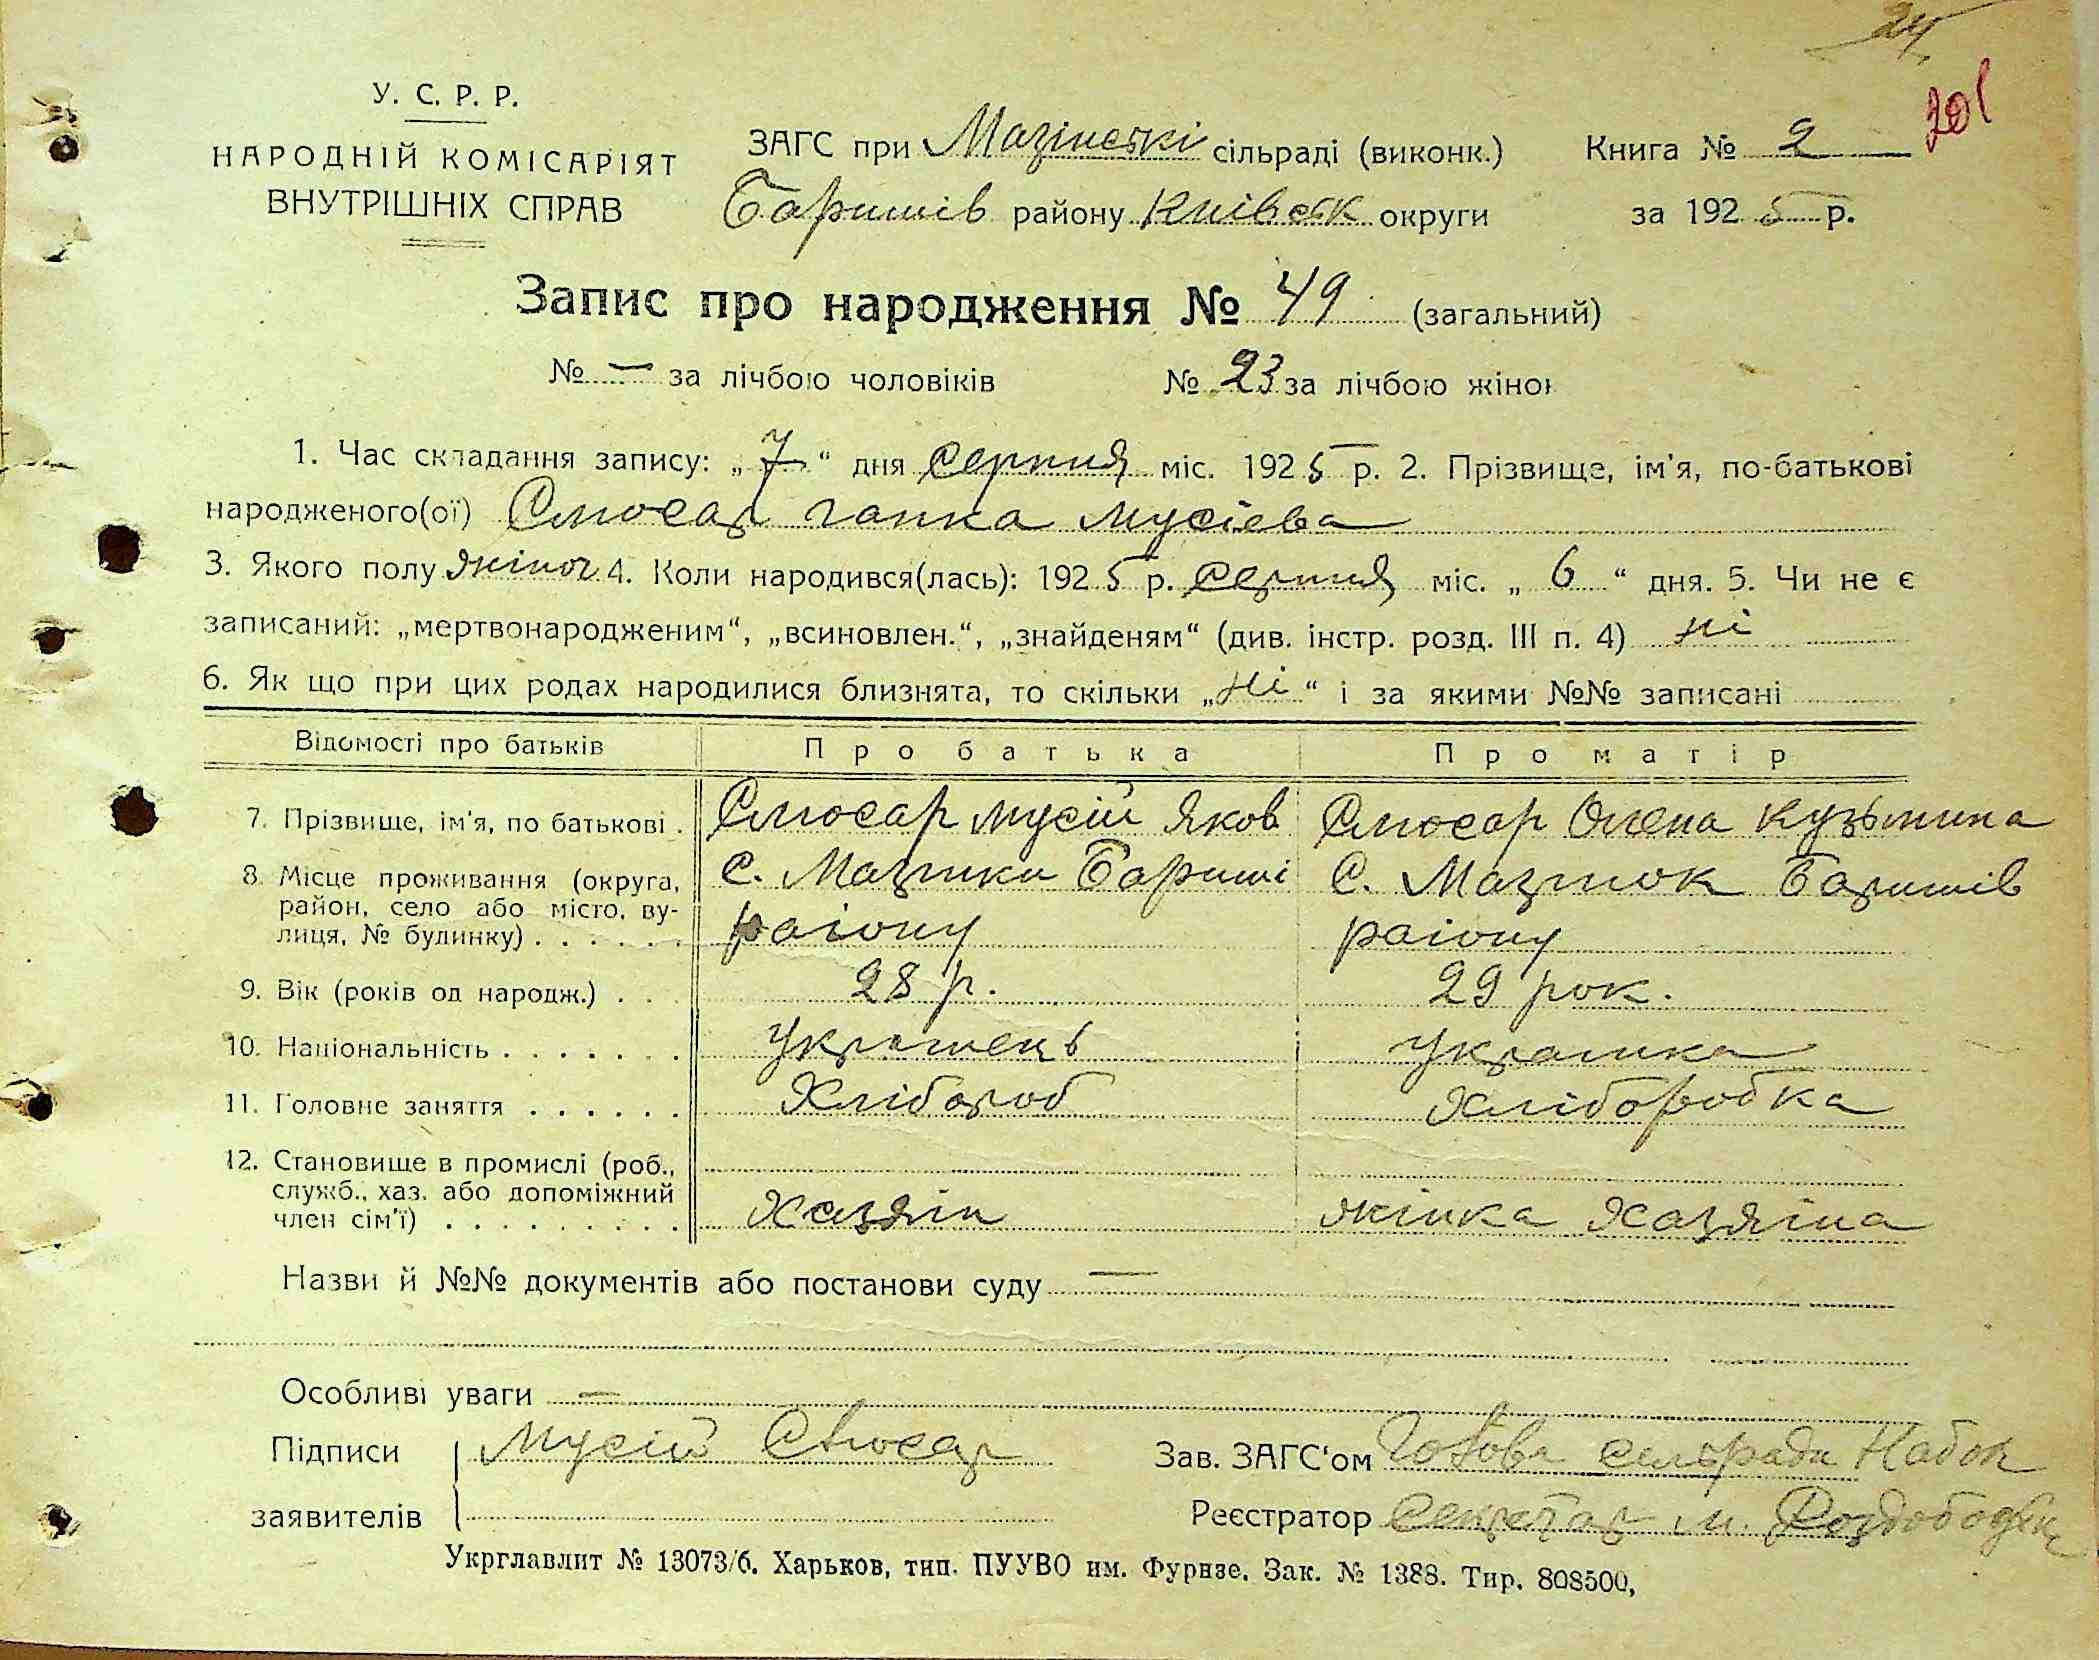 24
201
У. С. Р. Р.
НАРОДНІЙ КОМІСАРІЯТ
ВНУТРІШНІХ СПРАВ
ЗАГС при Мазінські сільраді (виконк.)
Баришів району Київськ округи
Книга № 2
за 1925 р.
Запис про народження № 49 (загальний)
№ — за лічбою чоловіків № 23 за лічбою жінок
1. Час складання запису: „7“ дня серпня міс. 1925 р. 2. Прізвище, ім'я, по-батькові
народженого(ої) Слюсар Гапка Мусієва
3. Якого полу жіноч 4. Коли народився(лась): 1925 р. серпня міс. „6“ дня. 5. Чи не є
записаний: „мертвонародженим“, „всиновлен.“, „знайденям“ (див. інстр. розд. III п. 4) ні
6. Як що при цих родах народилися близнята, то скільки „ні“ і за якими №№ записані
Відомості про батьків Про батька Про матір
7. Прізвище, ім'я, по батькові . Слюсар Мусій Яков Слюсар Олена Кузьмина
8. Місце проживання (округа, С. Мазінки Бариші С. Мазінок Баришів
район, село або місто, ву- району району
лиця, № будинку) . . . . . .
9. Вік (років од народж.) . . . 28 р. 29 рок.
10. Національність . . . . . . . Українець Українка
11. Головне заняття . . . . . . Хлібороб Хліборобка
12. Становище в промислі (роб.,
служб., хаз. або допоміжний
член сім'ї) . . . . . . . . . Хазяїн жінка Хазяїна
Назви й №№ документів або постанови суду —
Особливі уваги —
Підписи Мусій Слюсар
заявителів
Зав. ЗАГС'ом Голова сельради Набок
Реєстратор Секретар М.
Укрглавлит № 13073/б. Харьков, тип. ПУУВО им. Фурнзе. Зак. № 1388. Тир. 808500,